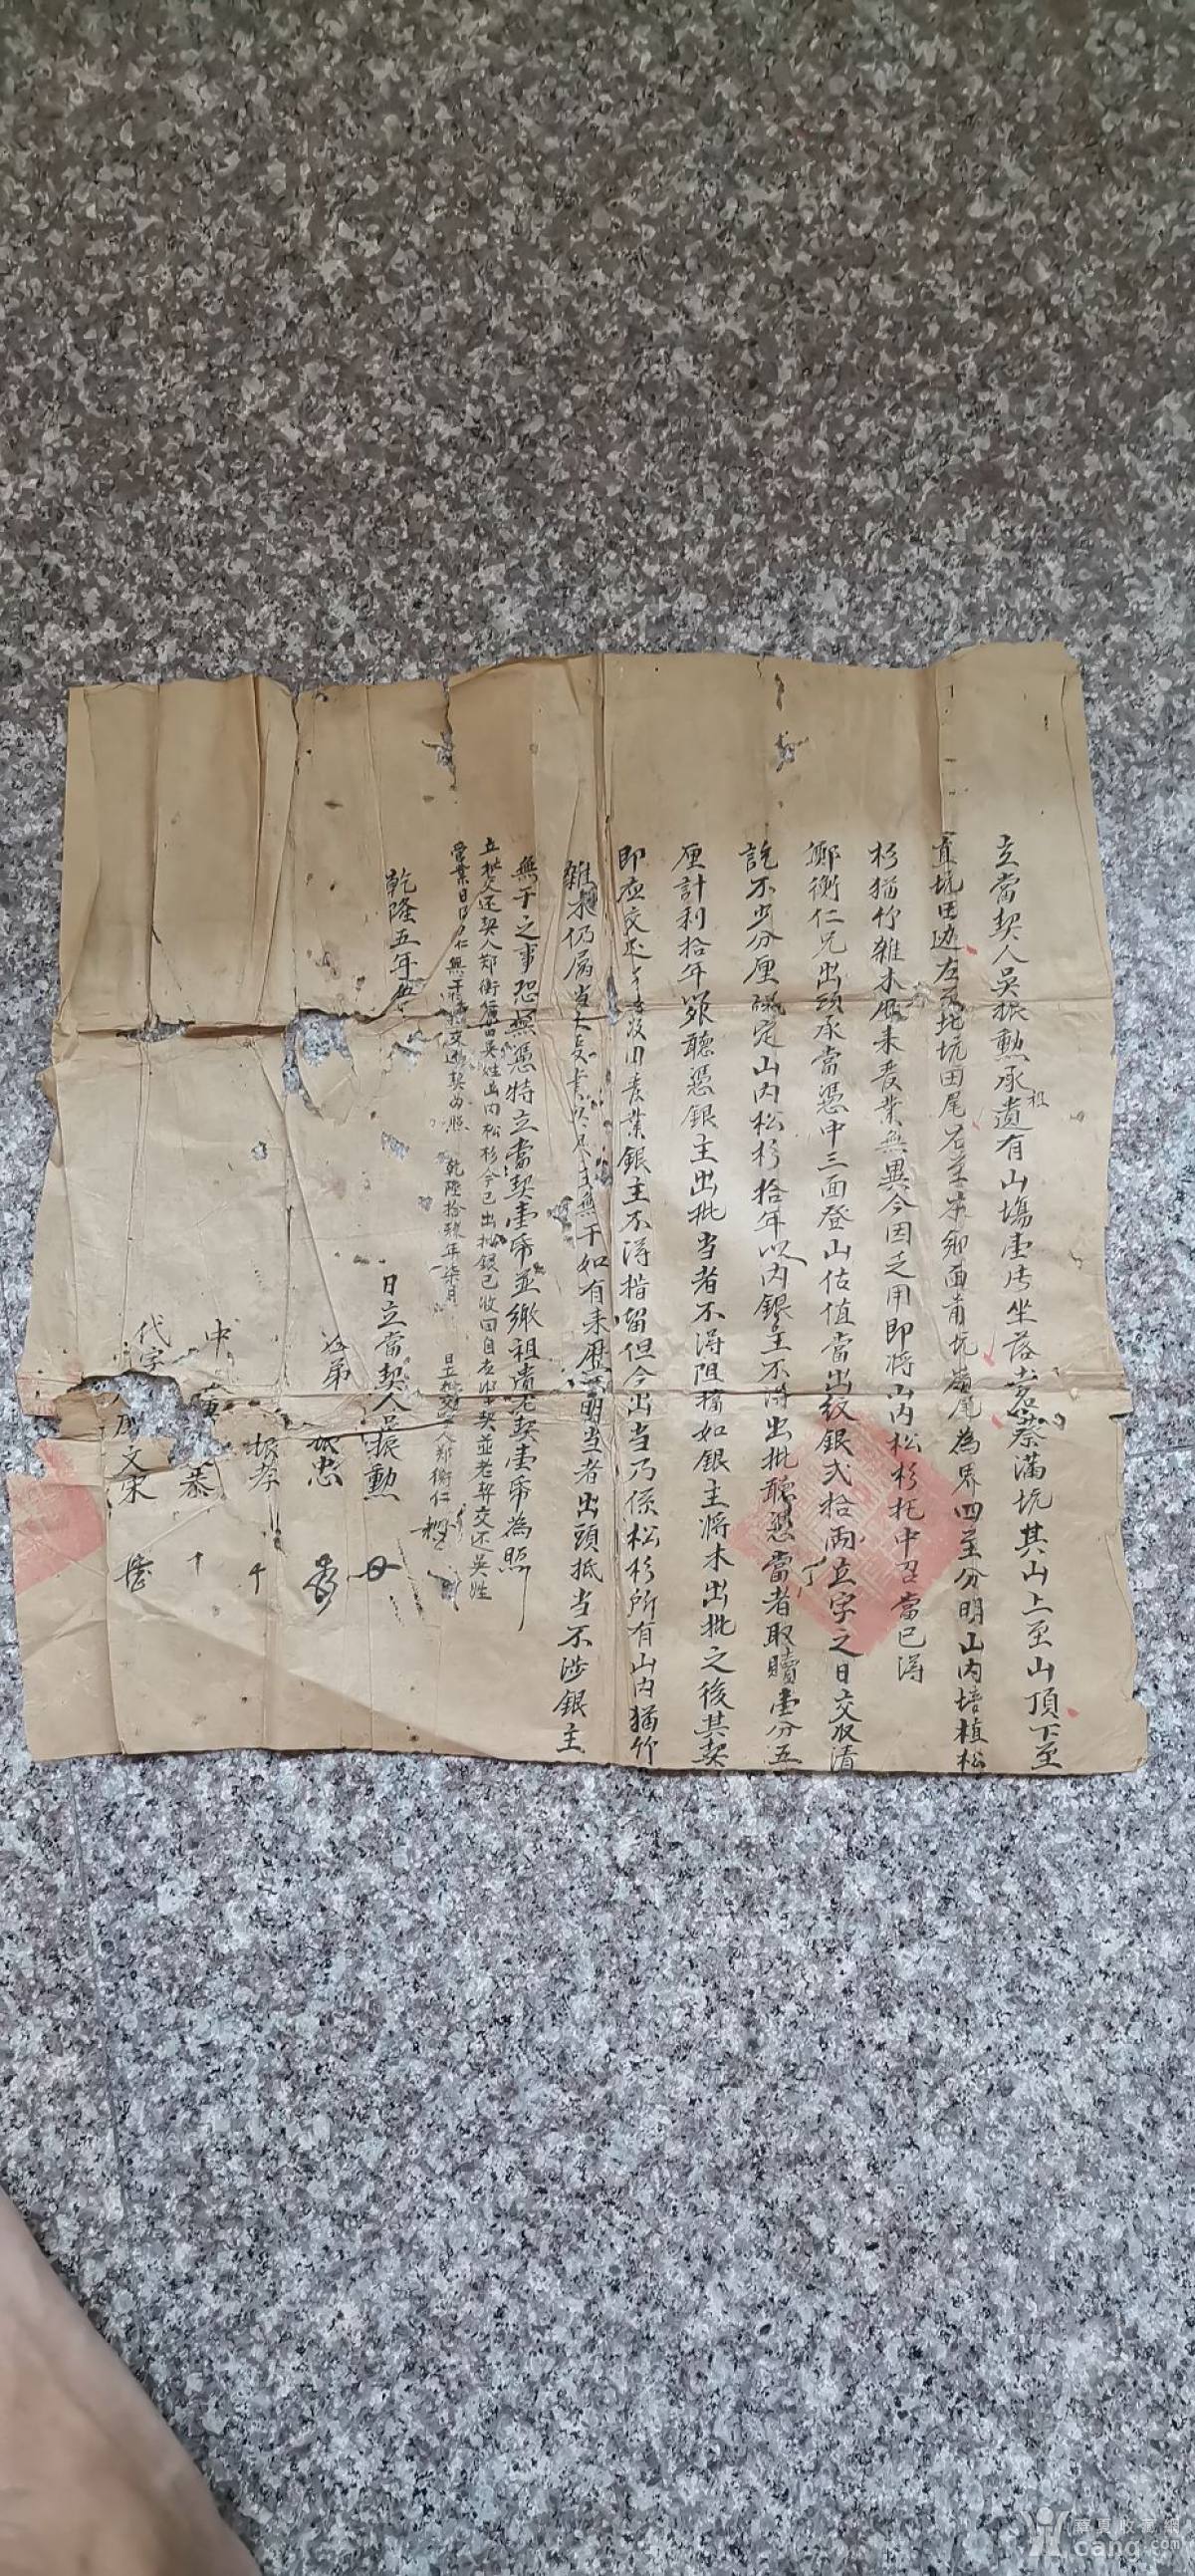 立當契人吳振勲承祖遺有山塲壹片坐落耆蔡滿坑其山上至山頂下至
直坑田边左至坑坑田尾右至嶺面青坑嶺尾為界四至分明山内培植松
杉猫竹雜木歷來晏業無異今因乏用即將山内松杉托中召當已得
鄭衡仁兄出頭承當憑中三面登山估值當出紋銀弍拾両立字之日交収清
訖不少分厘議定山内松杉拾年以内銀主不得出批聽憑當者取贖壹分五
厘計利拾年外聽憑銀主出批当者不得阻擋如銀主將木出批之後其契
即应交还業銀主不得措留但今出当乃係松杉所有山内猫竹
雜木仍屬当無干如有来歷不明当者出頭抵当不涉銀主
無干之事恐無憑特立當契壹帋並繳祖遺老契壹帋為照
立批交还契人郑衡仁吳姓山内松杉今已出批銀已收回自应当契並老契交还吳姓
管業日後仁無干特交還契為照 乾隆拾捌年柒月 日立批交還人郑衡仁
乾隆五年 日立當契人吳振勲
弟 振忠
振孝
中 恭
代字 文宋
華夏收藏網
cang.com